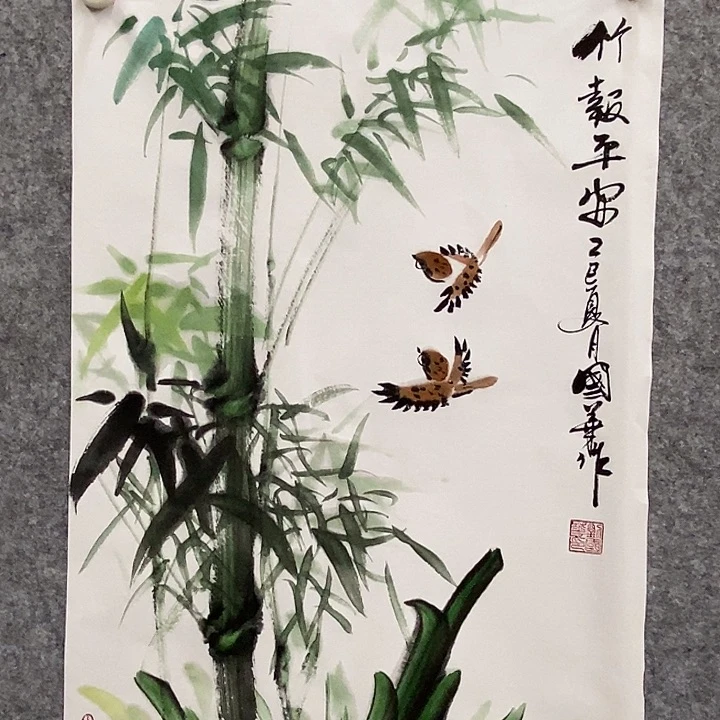 竹報平安乙巳夏月國華作